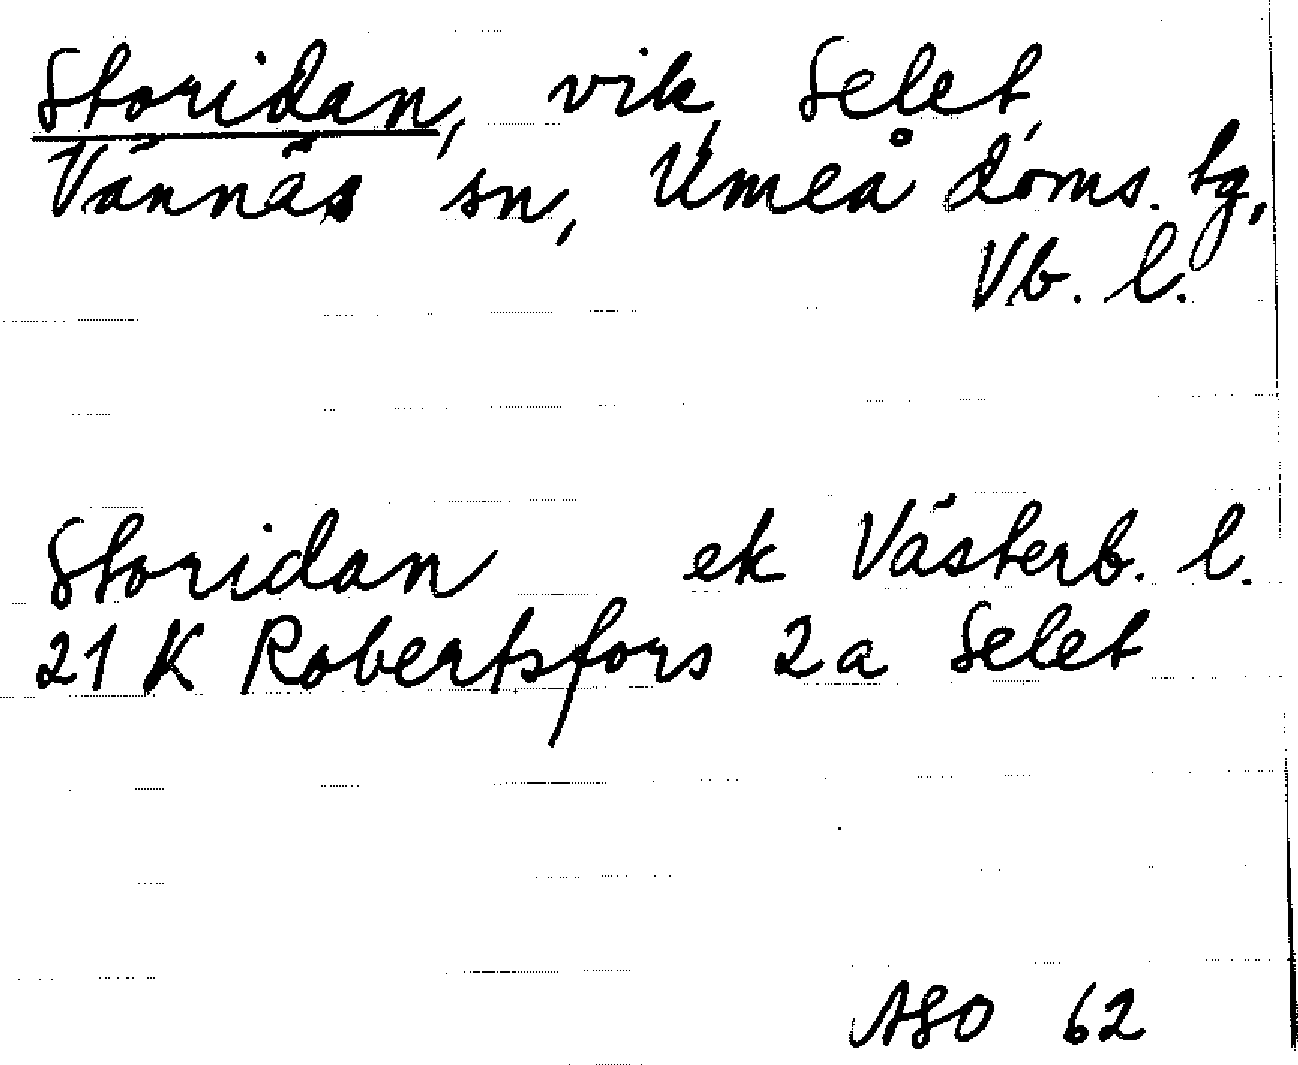 Storidan, vik, Selet,
Vännäs sn, Umeå doms. tg,
Vb. l.
Storidan ek Västerb. l.
21 K Robertsfors 2a Selet
ASO 62